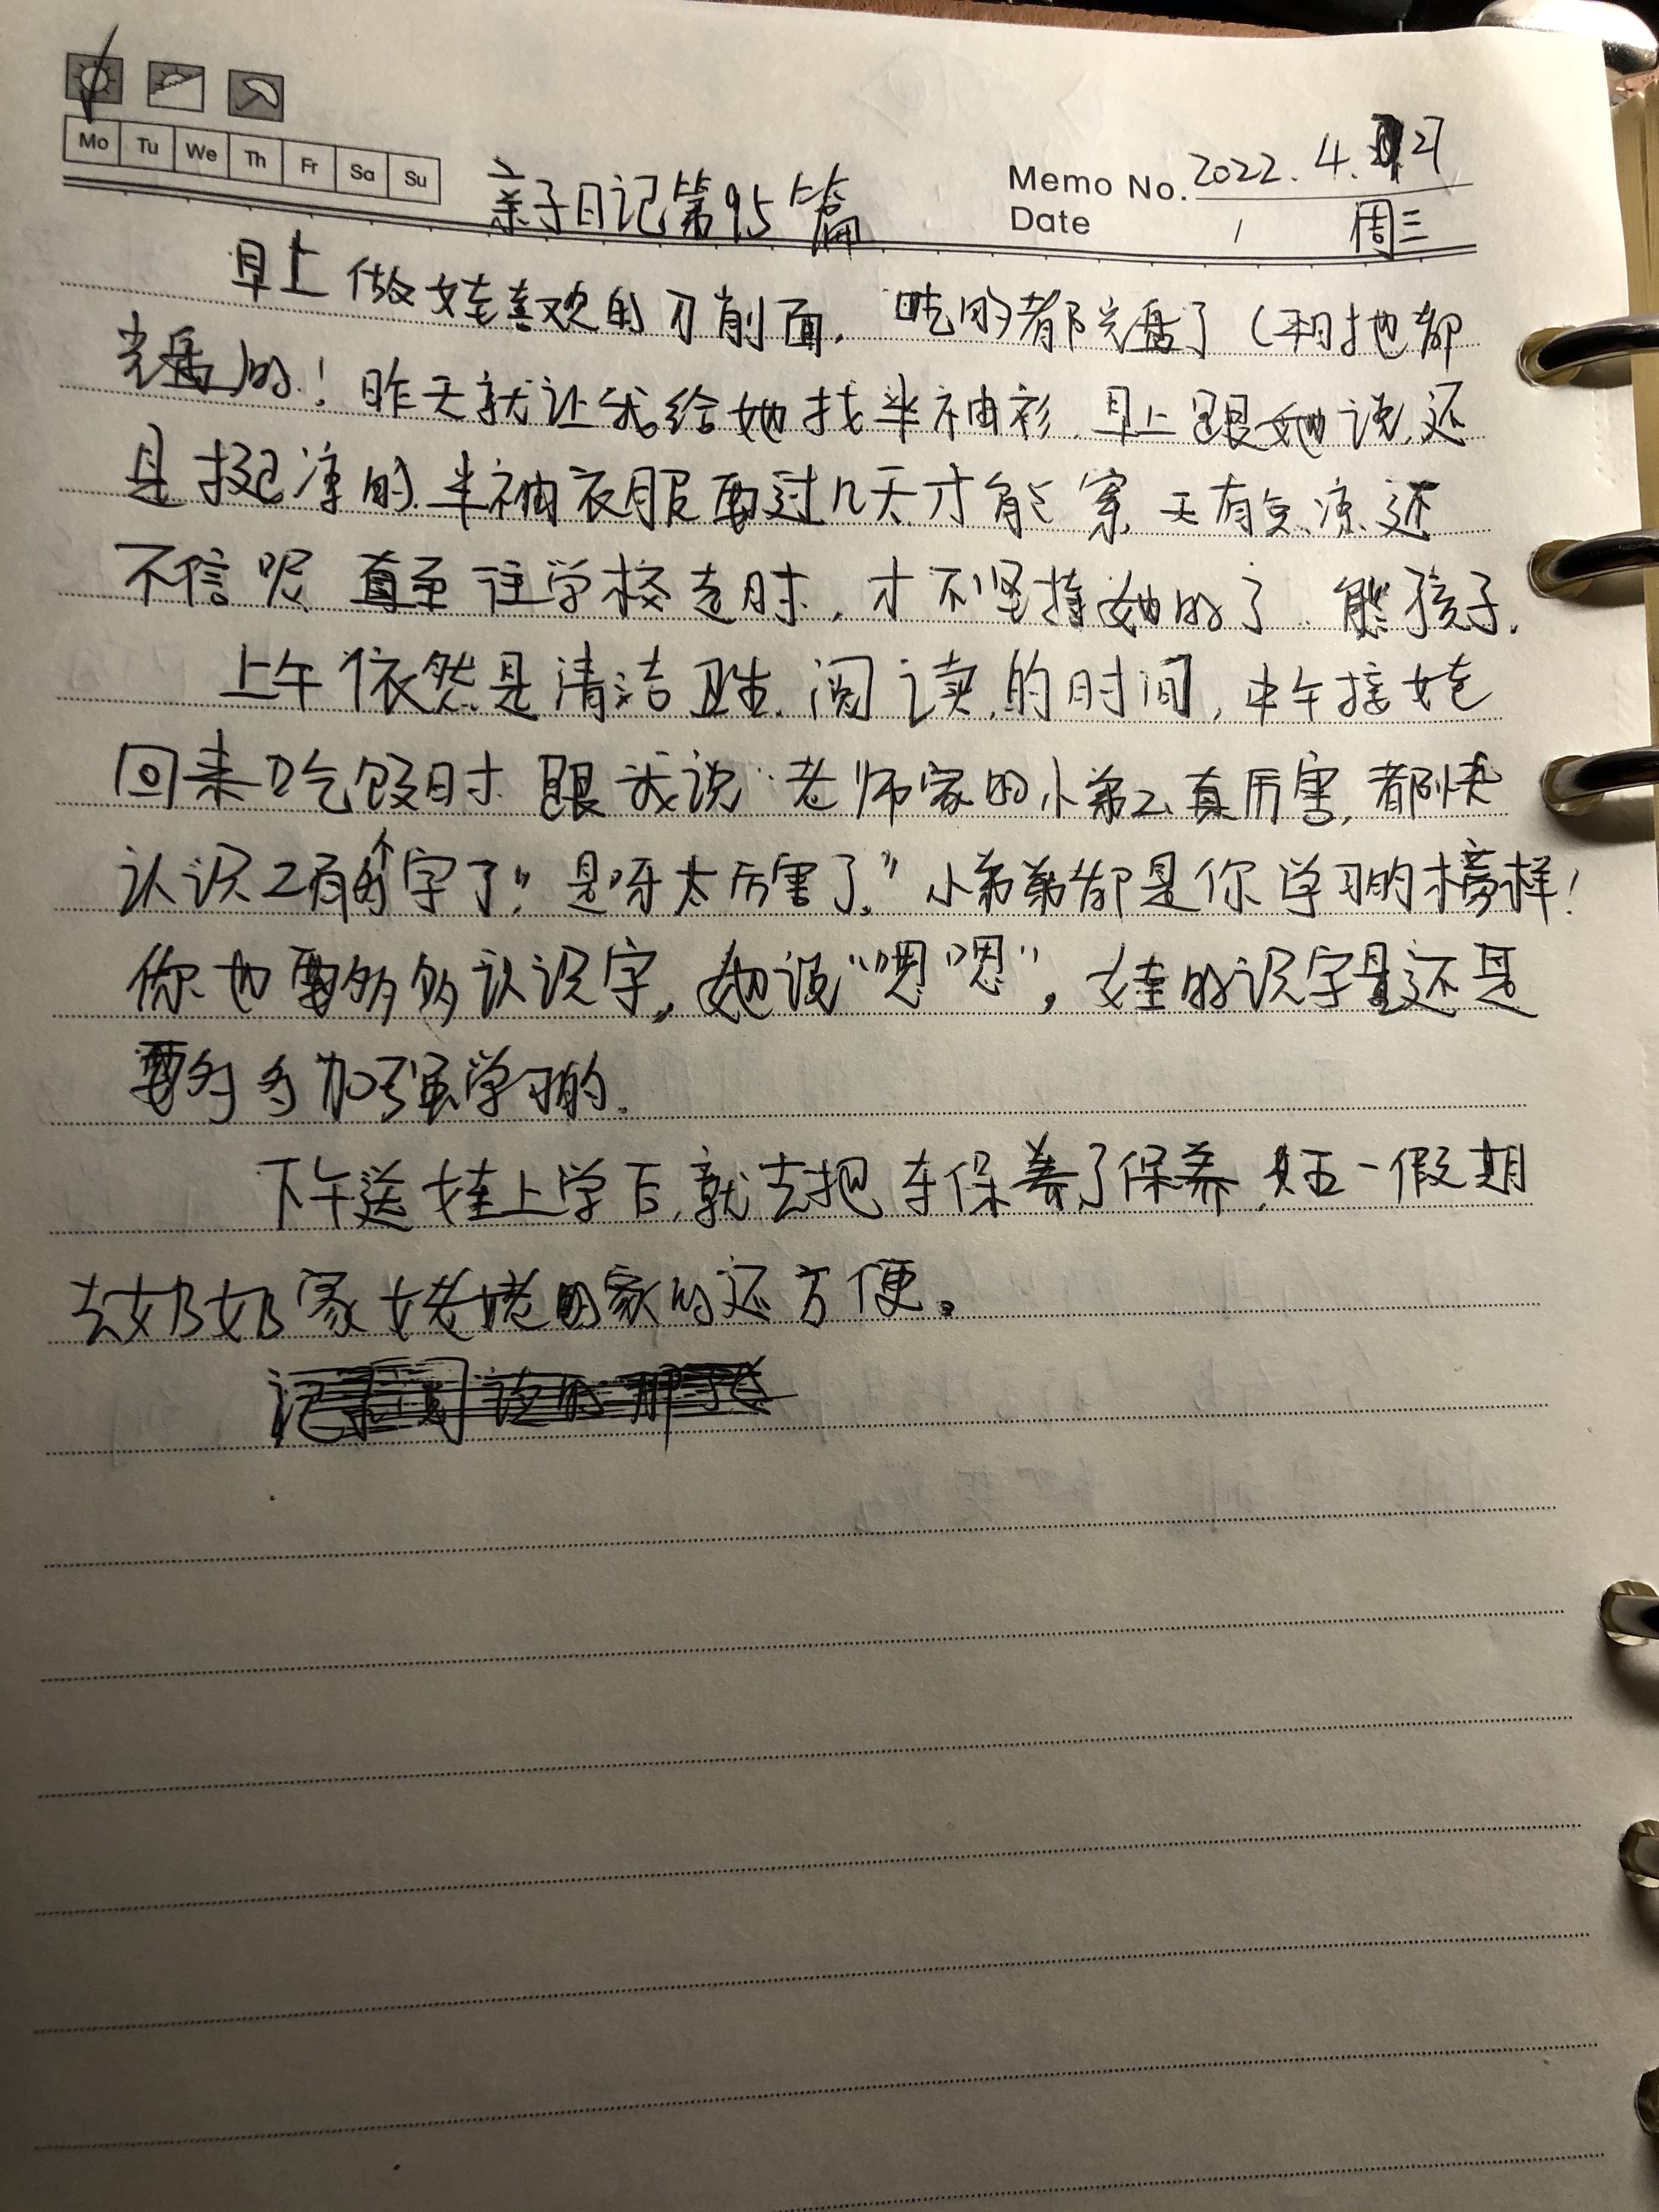 Mo Tu We Th Fr Sa Su
亲子日记第95篇
Memo No. 2022.4.27
Date / 周三
早上做娃喜欢的刀削面,吃的都光盘了(平日她都
光盘)的!昨天就让我给她找半袖衫,早上跟她说,还
是挺凉的,半袖衣服要过几天才能穿,天有点凉,还
不信呢,直至往学校走时,才不坚持她的了,熊孩子.
上午依然是清洁卫生,阅读,的时间,中午接娃
回来吃饭时,跟我说:老师家的小弟弟真厉害,都快
认识2百个字了”,是呀太厉害了。”小弟弟都是你学习的榜样!
你也要多多认识字,她说“嗯嗯”,娃的识字量还是
要多多加强学习的.
下午送娃上学后,就去把车保养了保养,好五一假期
去奶奶家姥姥家的还方便。